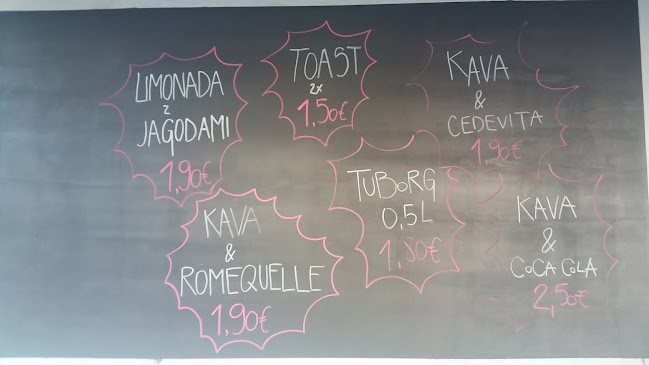 LIMONADA
z
JAGODAMI
1,90€
TOAST
2x
1,50€
KAVA
&
CEDEVITA
1,90€
KAVA
&
ROMEQUELLE
1,90€
TUBORG
0,5L
1,80€
KAVA
&
COCA COLA
2,50€